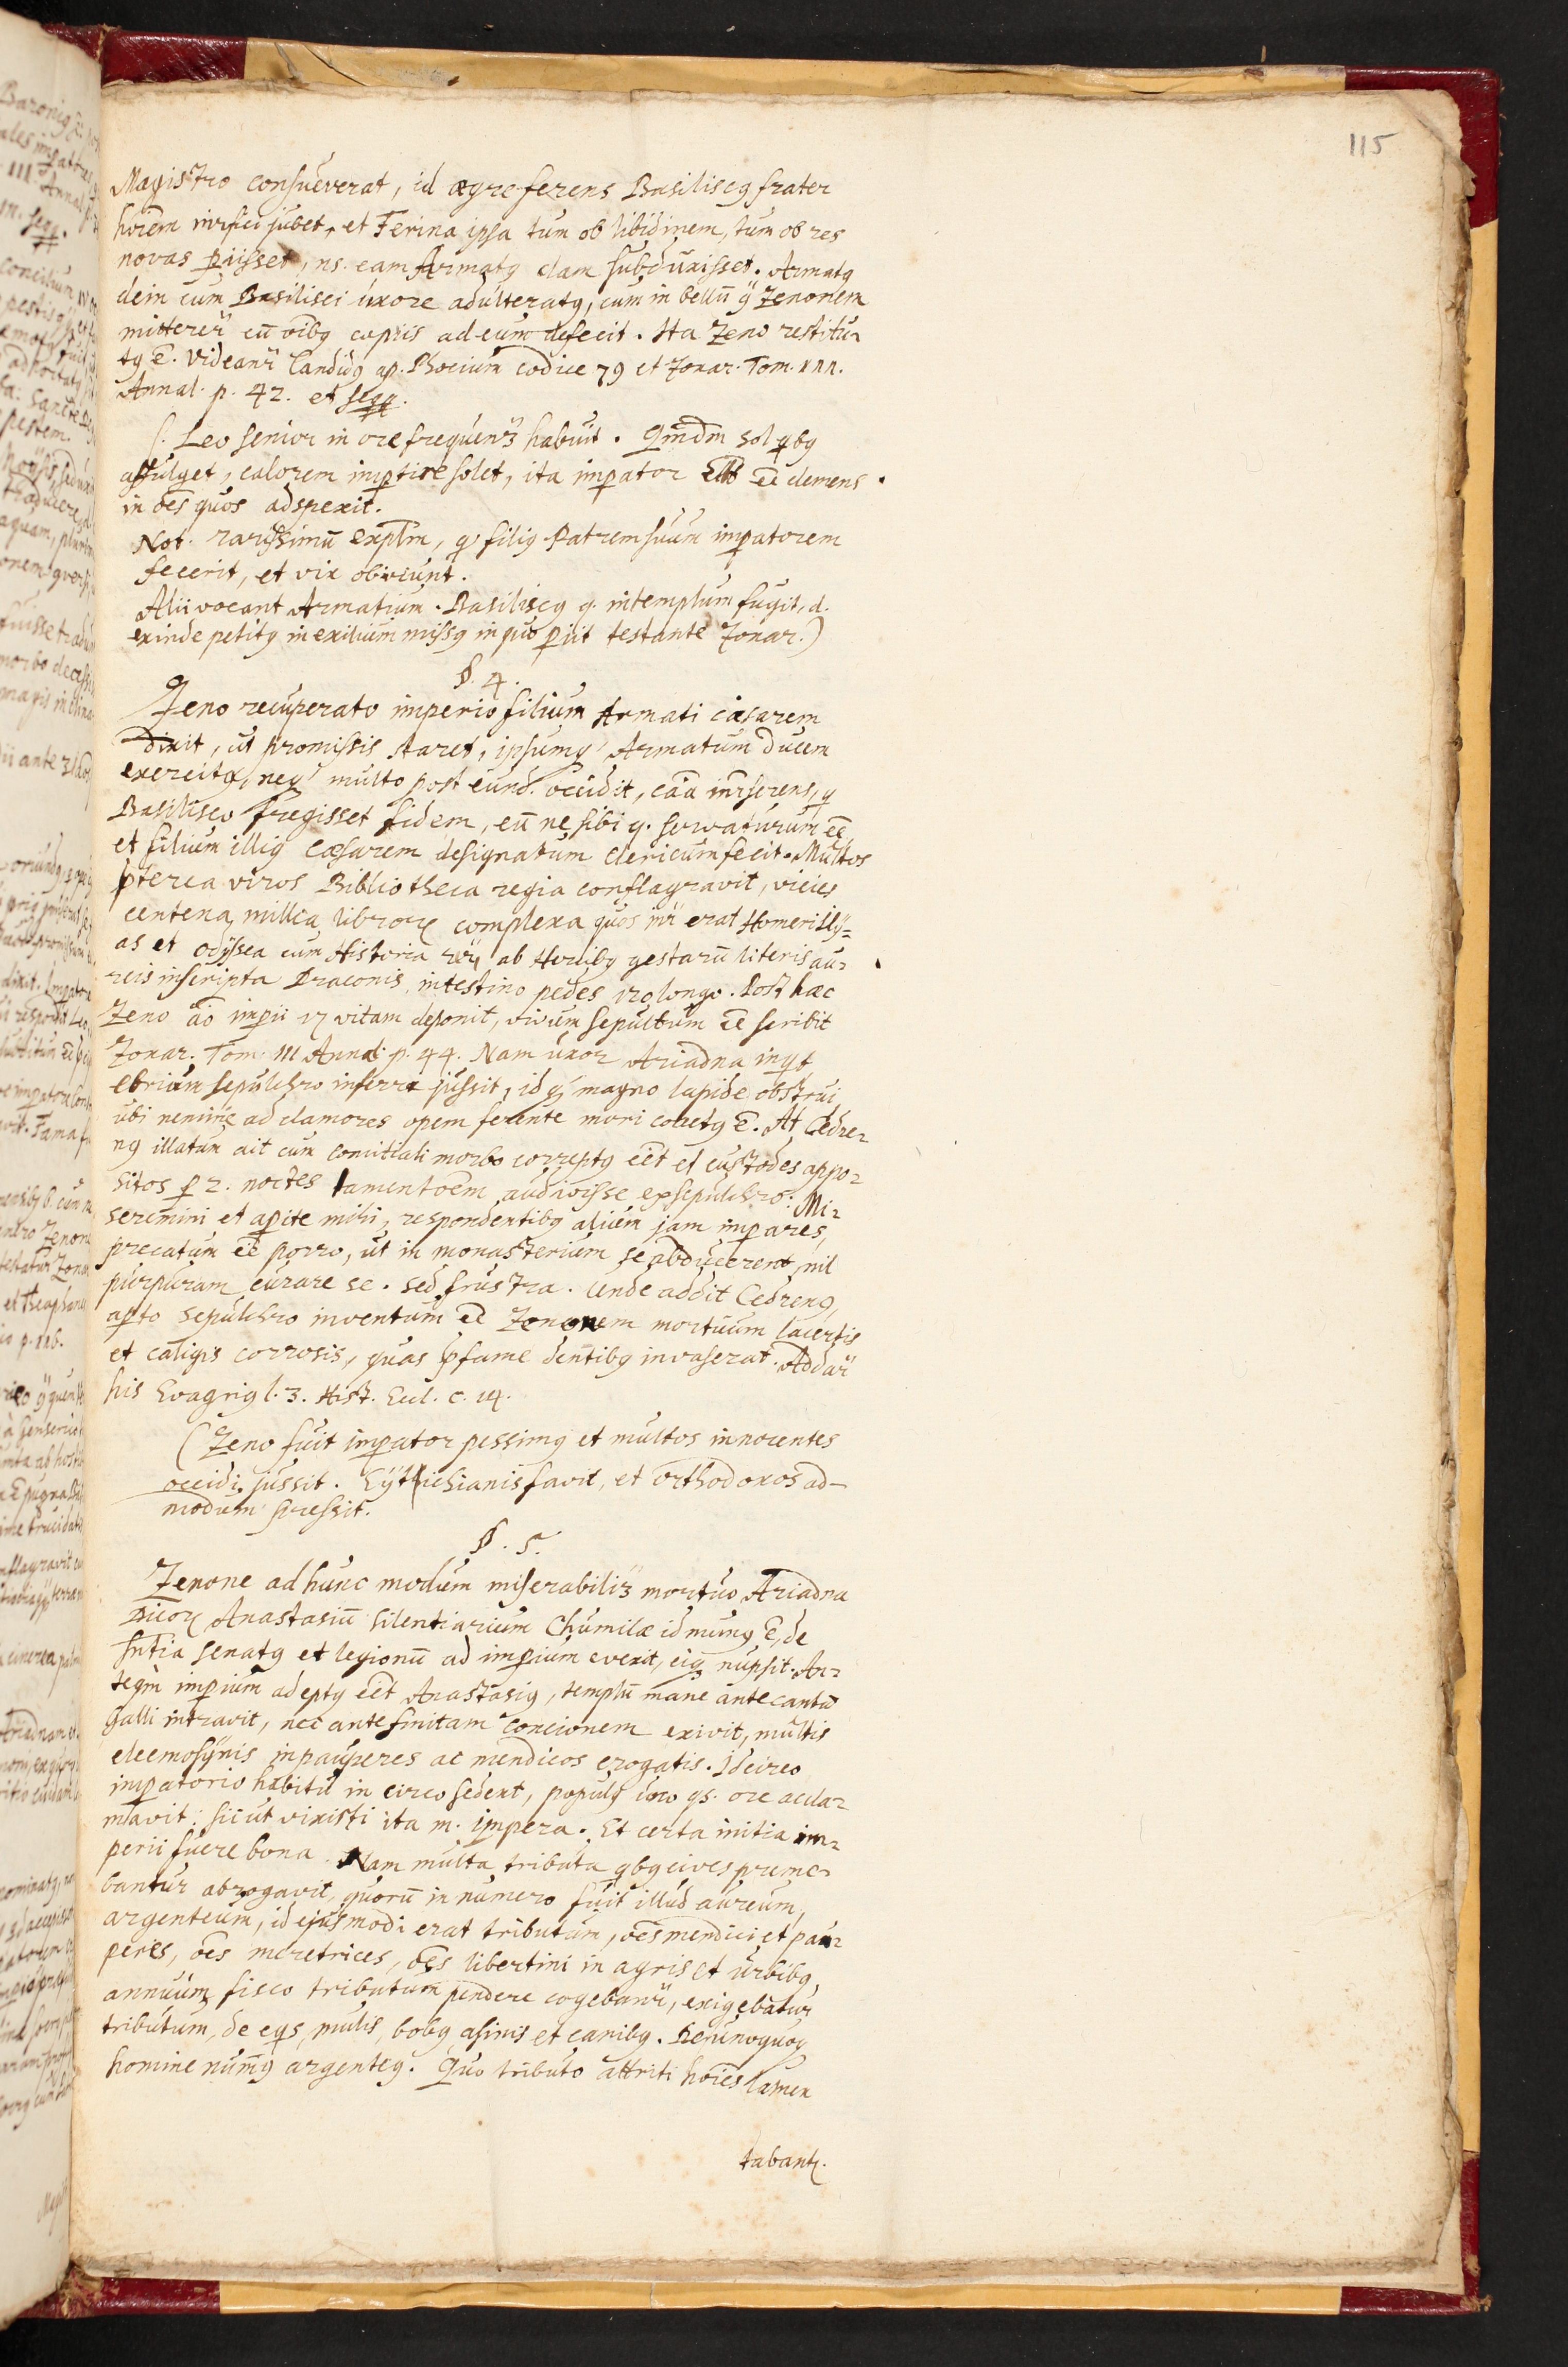 115
Magistro consueverat, id ægre ferens Basiliscꝰ frater
hoiem interfici jubet, et Ferina ipsa tum ob libidinem, tum ob res
novas ꝑiisset, ns. eam Armatꝰ clam subduxisset. Armatꝰ
dein cum Basilisci uxore adulteratꝰ, cum in bellū Zenonem
mitterer cū oibꝰ copiis ad eum defecit. Ita Zeno restitu-
tꝰ ē. Videant Candidꝰ ap. Phocium codice 79 et Zonar. Tom.
Annal. p. 42. et seqq.
(. Leo senior in ore frequenter habuit. Qmdm sol qbꝰ
affulget, calorem impertire solet, ita imꝑator ēē clemens
in oēs quos adspexit.
Not. rarissimū explm, qꝰ filiꝰ Patrem suum imꝑatorem
fecerit, et vix obviunt.
Alii vocant Armatium. Basiliscꝰ q. in templum fugit, d.
exinde petitꝰ in exilium missꝰ in quo ꝑiit testante Zonar.)
§. 4.
Zeno recuperato imperio filium Armati cæsarem
dixit, ut promissis staret, ipsumqꝫ Armatum ducem
exercitꝰ, neqꝫ multo post eund. occidit, caā inserens, q
Basilisco fregisset fidem, eū ne sibi q. servaturum ēē,
et filium illiꝰ cæsarem designatum clericum fecit. Multos
p̄terea viros Bibliotheca regia conflagravit, vicies
centena millia libroꝝ complexa quos inr erat Homeri Ily-
as et Odyssea cum Historia reꝝ ab Heroibꝰ gestarū literis au-
reis inscripta Draconis intestino pedes 120 longo. Post hæc
Zeno aō imꝑii 17 vitam deponit, vivum sepultum ēē scribit
Zonar. Tom. III Annal. p. 44. Nam uxor Ariadna inqt,
ebrium sepulchro inferri jussit, idqꝫ magno lapide obstrui,
ubi nemine ad clamores opem ferente mori coactꝰ ē. At Cedre-
nꝰ illatum ait cum comitiali morbo correptꝰ eēt et custodes appo-
sitos ꝑ 2. noctes lamentoēm audivisse ex sepulchro: Mi-
seremini et aꝑite mihi, respondentibꝰ alium jam imꝑare,
precatum ēē porro, ut in monasterium se abducerent, nil
purpuram curare se. Sed frustra. Unde addit Cedrenꝰ,
aꝑto sepulchro inventum ēē Zenonem mortuum lacertis
et caligis corrosis, quas p̄ fame dentibꝰ invaserat. Addar
his Evagriꝰ l. 3. Hist. Eccl. c. 14.
(Zeno fuit imꝑator pessimꝰ et multos innocentes
occidi jussit. Eytichianis favit, et orthodoxos ad-
modum pressit.
§. 5.
Zenone ad hunc modum miserabiliter mortuo Ariadna
Anastasiū silentiarium (humile id munꝰ ē, de
sntia senatꝰ et legionū ad imꝑium evexit, eiqꝫ nupsit. An-
teqm imꝑium adeptꝰ eēt Anastasiꝰ, templū mane ante cantū
Galli intravit, nec ante finitam concionem exivit, multis
eleemosynis in pauperes ac mendicos erogatis. Idcirco
imꝑatorio habitu in circo sedent, populꝰ uno qs. ore accla-
mavit: sicut vixisti ita m. impera. Et certa initia im-
perii fuere bona. Nam multa tributa qbꝰ cives preme-
bantur abrogavit, quorū in numero fuit illud aureum,
argenteum, id ejusmodi erat tributum, oēs mendici et pau-
peres, oēs meretrices, oēs libertini in agris et urbibꝰ,
annuum fisco tributum pendere cogebanr, exigebatur
tributum, de eqs, mulis, bobꝰ, asinis et canibꝰ. De unoquoqꝫ
homine numꝰ argenteꝰ. Quo tributo attriti hoies lamen
tabant.